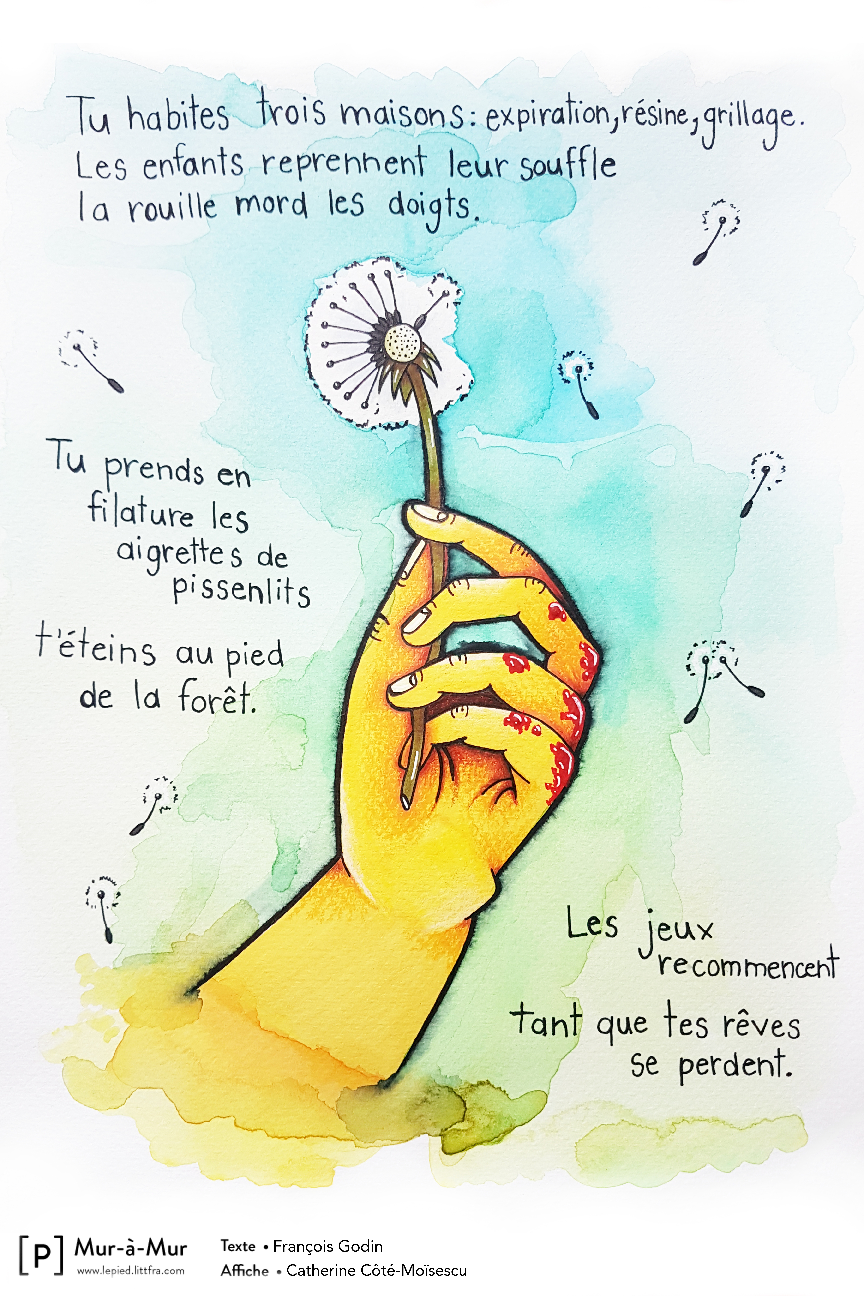 Tu habites trois maisons: expiration, résine, grillage.
Les enfants reprennent leur souffle
la rouille mord les doigts.
Tu prends en
filature les
aigrettes de
pissenlits
t'éteins au pied
de la forêt.
Les jeux
recommencent
tant que tes rêves
se perdent.
[P] Mur-à-Mur
www.lepied.littfra.com
Texte • François Godin
Affiche • Catherine Côté-Moïsescu